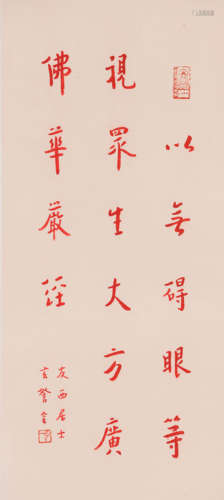 以無碍眼等
視眾生大方廣
佛華嚴經
友西居士
玄謷書